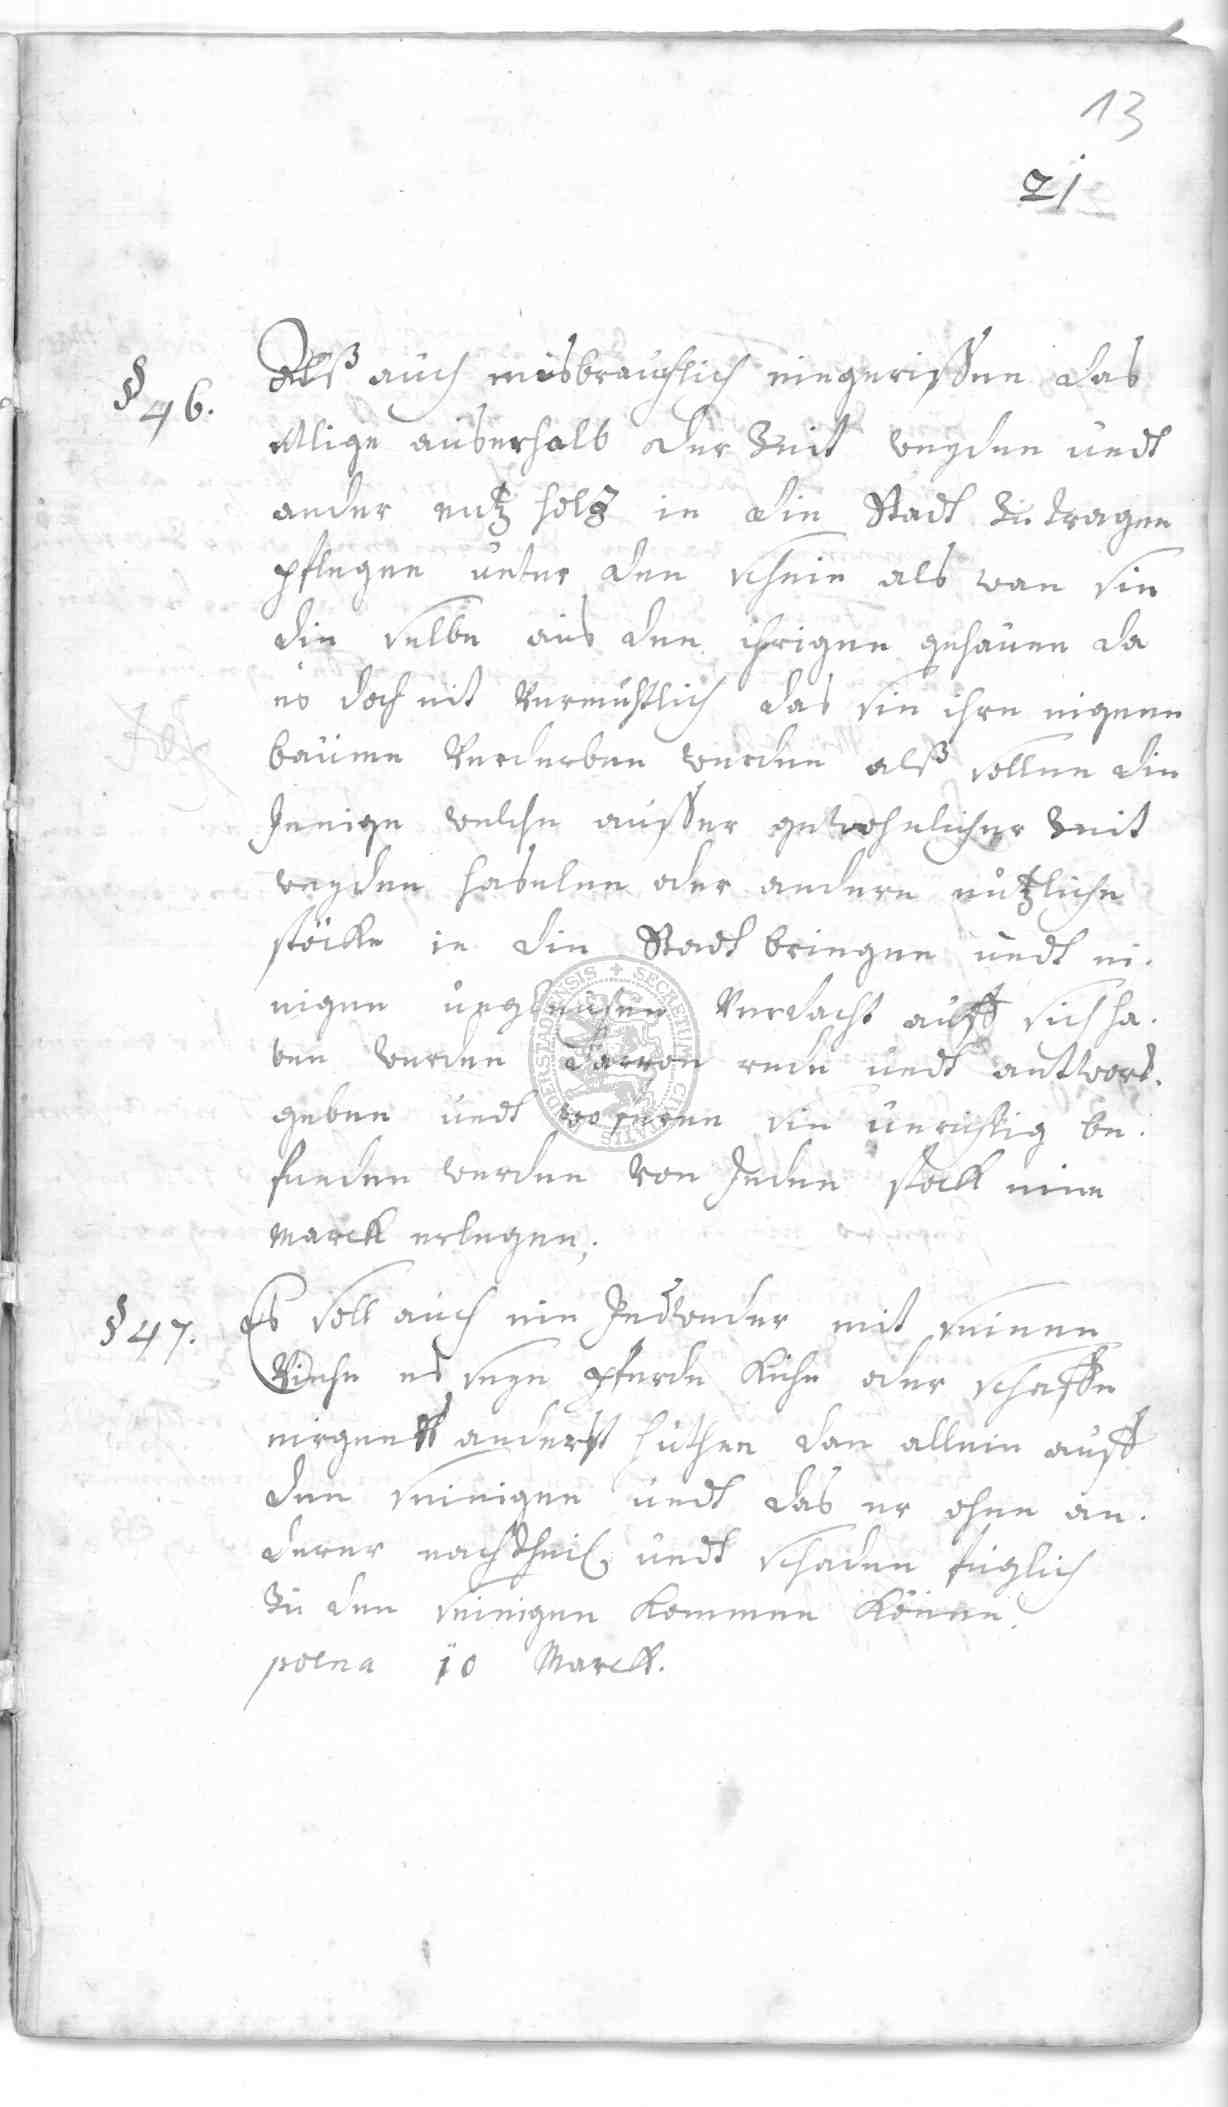 13
21
§ 46.
Alß auch misbrauchlich eingerißen das
Etlige auserhalb der Zeit weyden undt
ander nutz holz in die Stadt zu tragen
pflegen unter den schein als wan sie
die selbe aus den ihrigen gehauen da
es doch nit Vermuhtlich das sie ihre eigene
bäume Verderben wurden alß sollen die
Jenige welche ausser gewohnlicher Zeit
weyden haselen oder andere nutzliche
stöcke in die Stadt bringen undt ei-
nigen ungleichen Verdacht auff sich ha-
ben werden darvon rede undt antwort
geben undt woferen sie unrichtig be-
funden werden von Jeden stock eine
Marck erlegen,
§ 47.
Es soll auch ein Jedweder mit seinen
Viehe es seye pferde Kühe oder schaffe
nirgentß anderst hüthen dan allein auff
den seinigen undt das er ohne an-
derer nachtheil undt schaden füglich
zu den seinigen kommen könne.
poena 10 Marck.
SECRETUM CIVITATIS